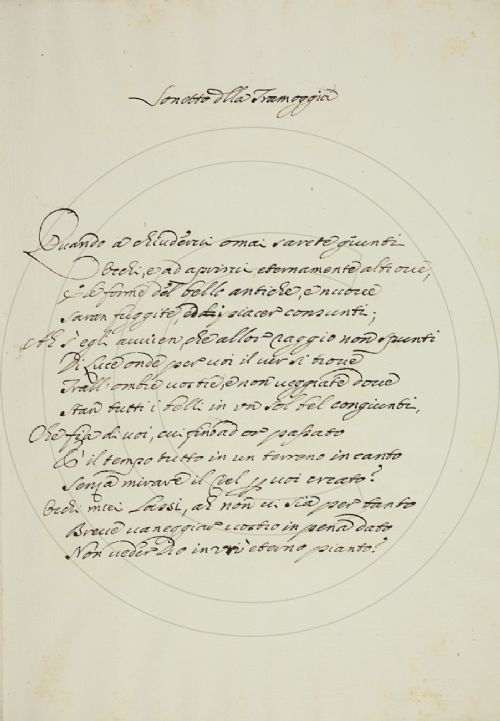 Sonetto della Tramoggia
Quando a chiudervi omai sarete giunti
Occhi, e ad aprirvi eternamente altrove,
E le forme del bello antiche, e nuove
Saran fuggite, ed i piacer consunti;
Ah s'egli avvien, che allor raggio non spunti
Di Luce onde per voi il ver si trove
Trall'ombre vostre, e non veggiate dove
Stan tutti i belli in un sol bel congiunti,
Che fia di voi, cui finad or passato
E' il tempo tutto in un terreno incanto
Senza mirare il Ciel p voi creato?
Occhi miei Lassi, ah non vi sia per tanto
Breve vaneggiar vostro in pena dato
Non veder Dio in eterno pianto?